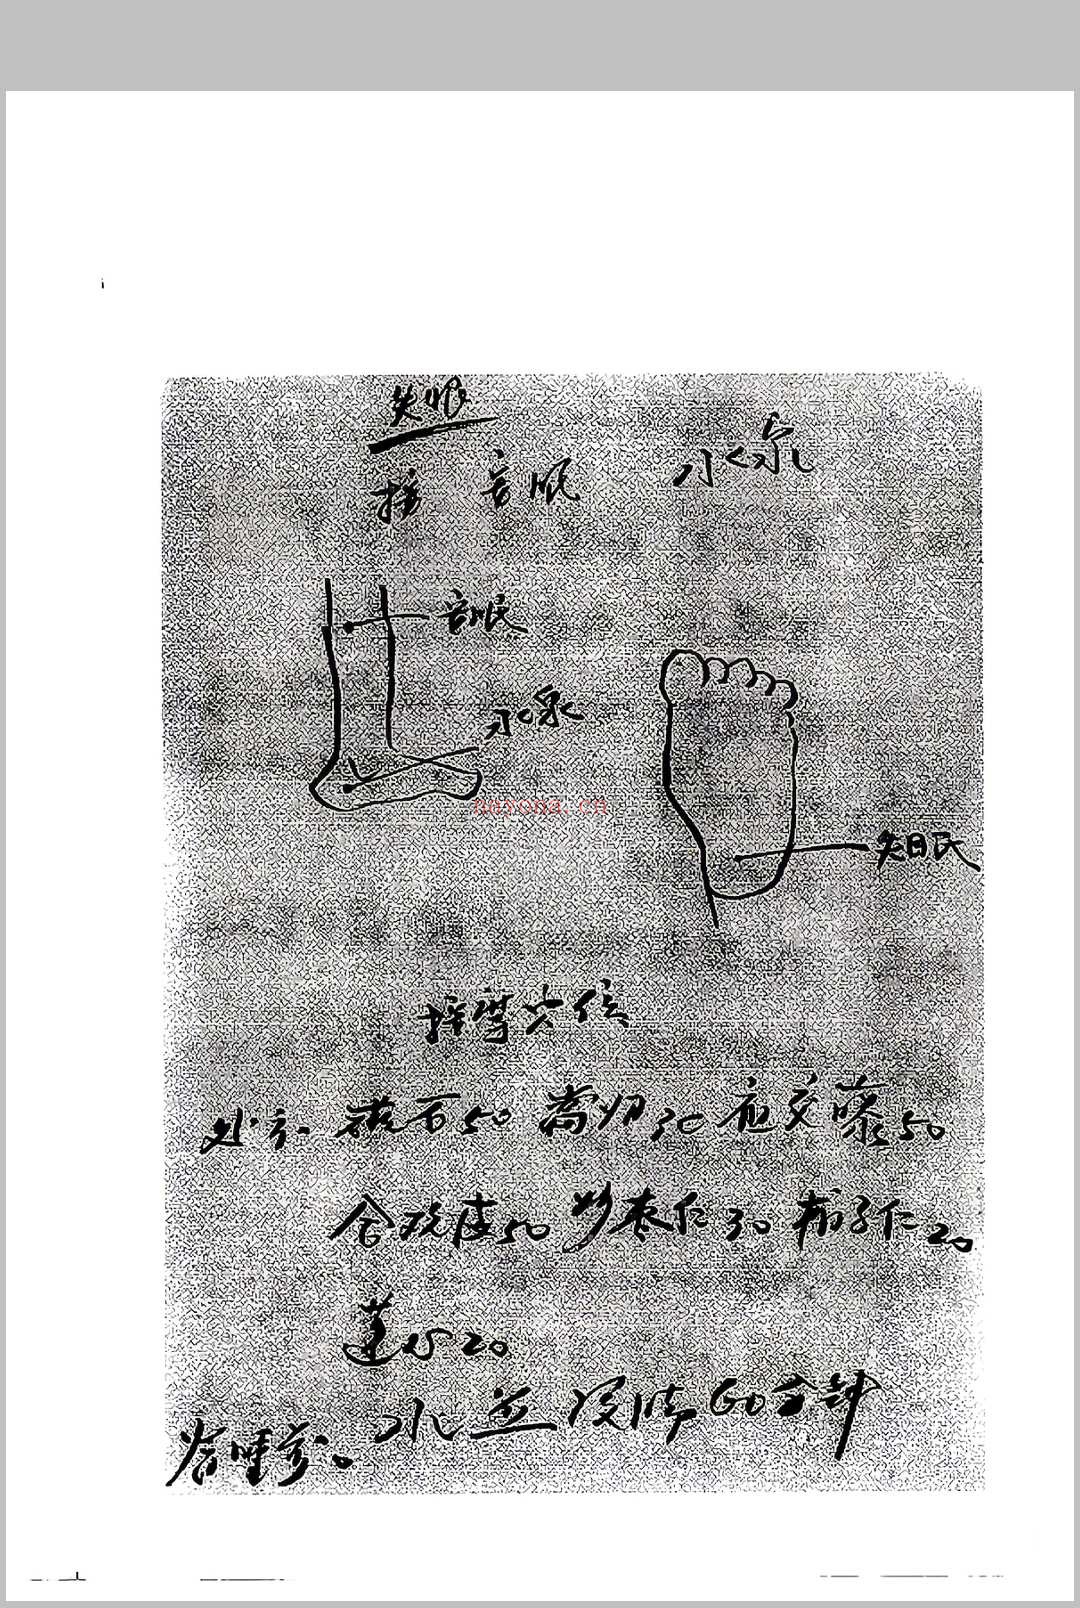 失眠
按 音眠 水泉
音眠
水泉
失眠
按摩穴位
处方 50 當归30 夜交藤50
合欢皮50 炒枣仁30 柏子仁20
莲心20
水煎浸脚60分钟
睡前。
nayona.cn